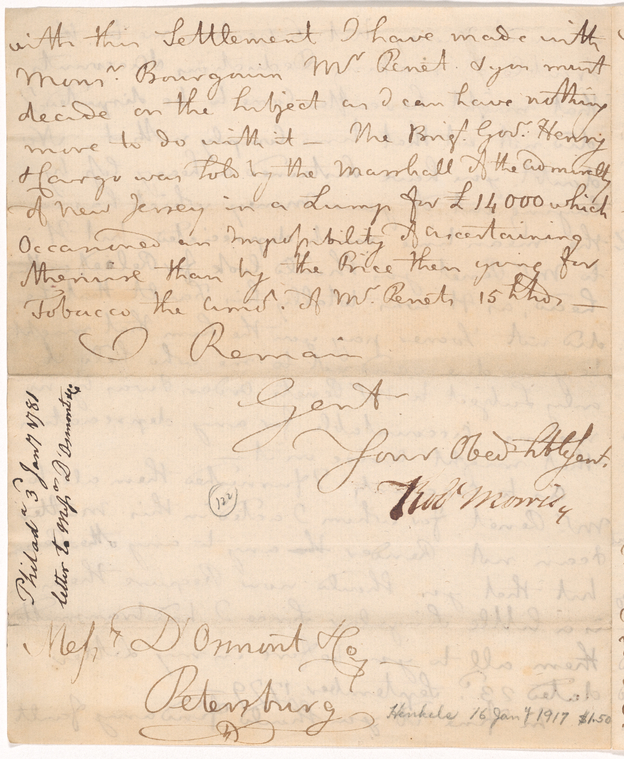 with this Settlement I have made with
Monsr. Bourgouin Mr. Penet & you must
decide on the Subject as I can have nothing
more to do with it — The Brigt. Govr. Henry
& Cargo was sold by the Marshall of the admiralty
of New Jersey in a Lump for £14,000 which
Occasioned an Impossibility of ascertaining
otherwise than by the Price then going for
Tobacco the amot. of Mr. Penets 15 hhds —
I Remain
Gentn
Your Obedt hble Servt.
Robt Morris
Philada 3 Jany 1781
letter to Messrs D'Osmont &c
122
Messrs. D'Osmont & Co
Petersburg
Henkels 16 Jany 1917 $1.50